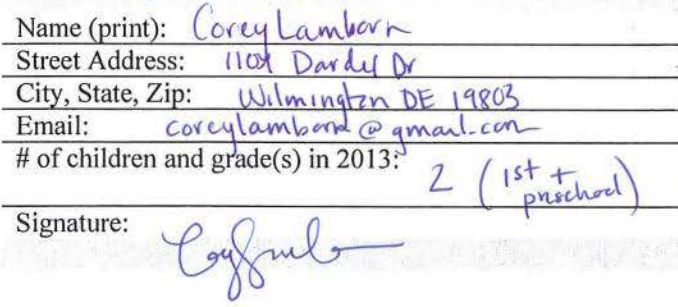 Name (print): Corey Lamborn
Street Address: Dardel Dr
City, State, Zip: Wilmington DE 19803
Email: coreylamborn@gmail.com
# of children and grade(s) in 2013: 2 (1st + preschool)
Signature: